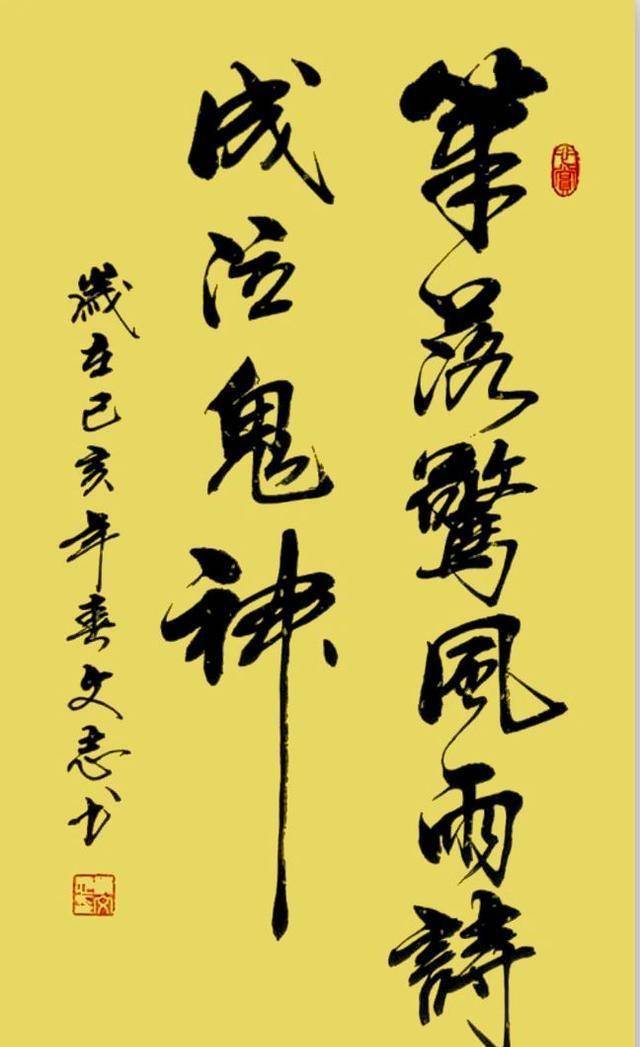 筆落驚風雨詩
成泣鬼神
歲在己亥年春文志书